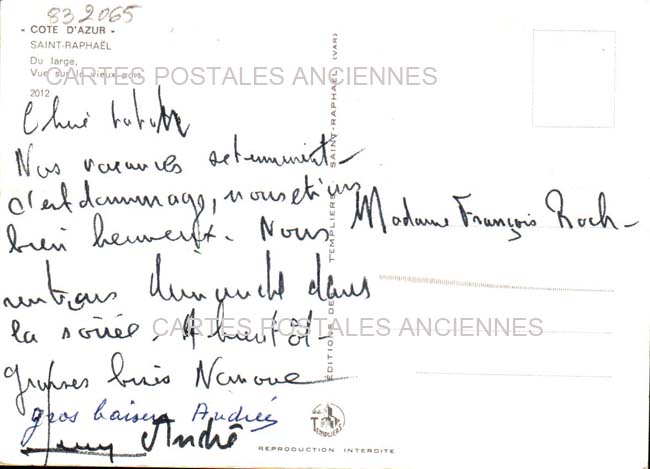 832065
" COTE D'AZUR "
SAINT-RAPHAËL
Du large,
Vue sur le vieux port
2012
CARTES POSTALES ANCIENNES
Nos vacances se terminent
c'est dommage, nous étions
bien heureux. Nous
rentrons dimanche dans
la soirée. A bientôt
grosses bises Nanou
gros baisers Andrée
André
Madame François Roch
ÉDITIONS DES TEMPLIERS - SAINT-RAPHAËL (VAR)
CARTES POSTALES ANCIENNES
TEMPLIERS
REPRODUCTION INTERDITE